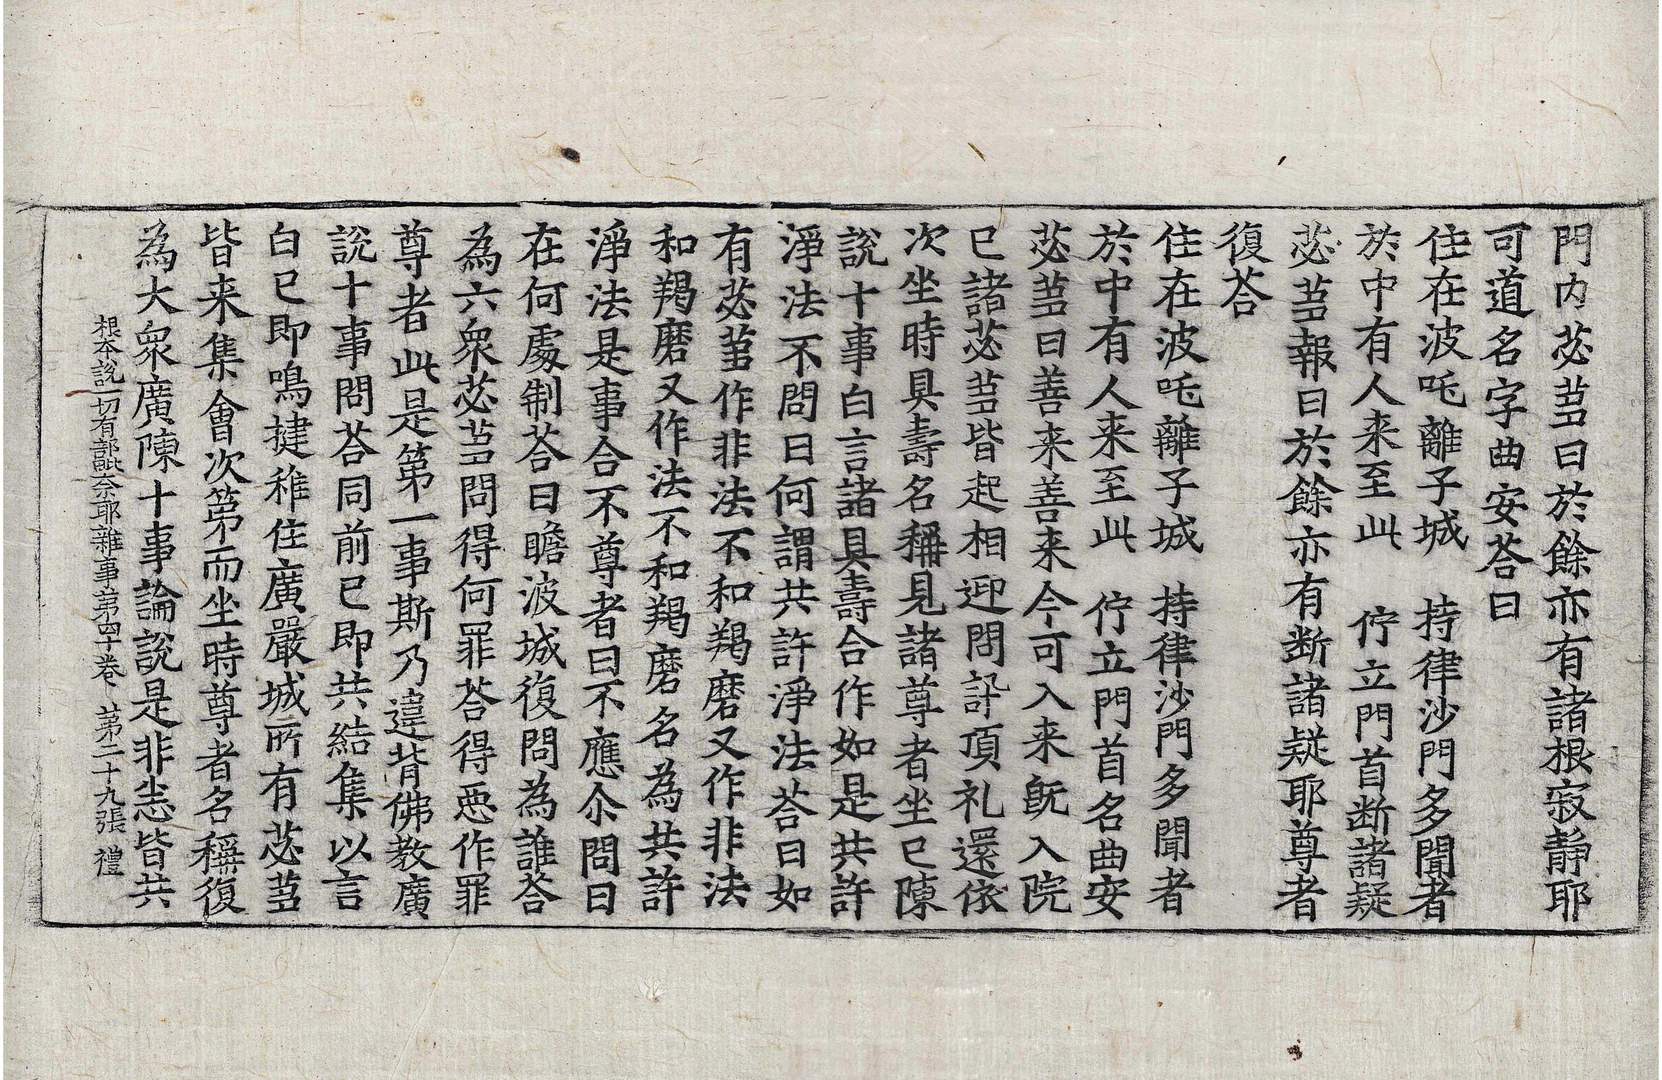 門内苾蒭曰於餘亦有諸根寂靜耶
可道名字曲安荅曰
住在波吒離子城　持律沙門多聞者
於中有人来至此　佇立門首断諸疑
苾蒭報曰於餘亦有断諸疑耶尊者
復荅
住在波吒離子城　持律沙門多聞者
於中有人来至此　佇立門首名曲安
苾蒭曰善来善来今可入来旣入院
已諸苾蒭皆起相迎問訊頂礼還依
次坐時具壽名稱見諸尊者坐已陳
說十事白言諸具壽合作如是共許
淨法不問曰何謂共許淨法荅曰如
有苾蒭作非法不和羯磨又作非法
和羯磨又作法不和羯磨名為共許
淨法是事合不尊者曰不應尒問曰
在何處制荅曰瞻波城復問為誰荅
為六衆苾蒭問得何罪荅得惡作罪
尊者此是第一事斯乃違背佛教廣
說十事問荅同前已即共結集以言
白已即鳴揵稚住廣嚴城所有苾蒭
皆来集會次第而坐時尊者名稱復
為大衆廣陳十事論說是非悉皆共
根本說一切有部毗奈耶雜事第四十卷　第二十九張　禮